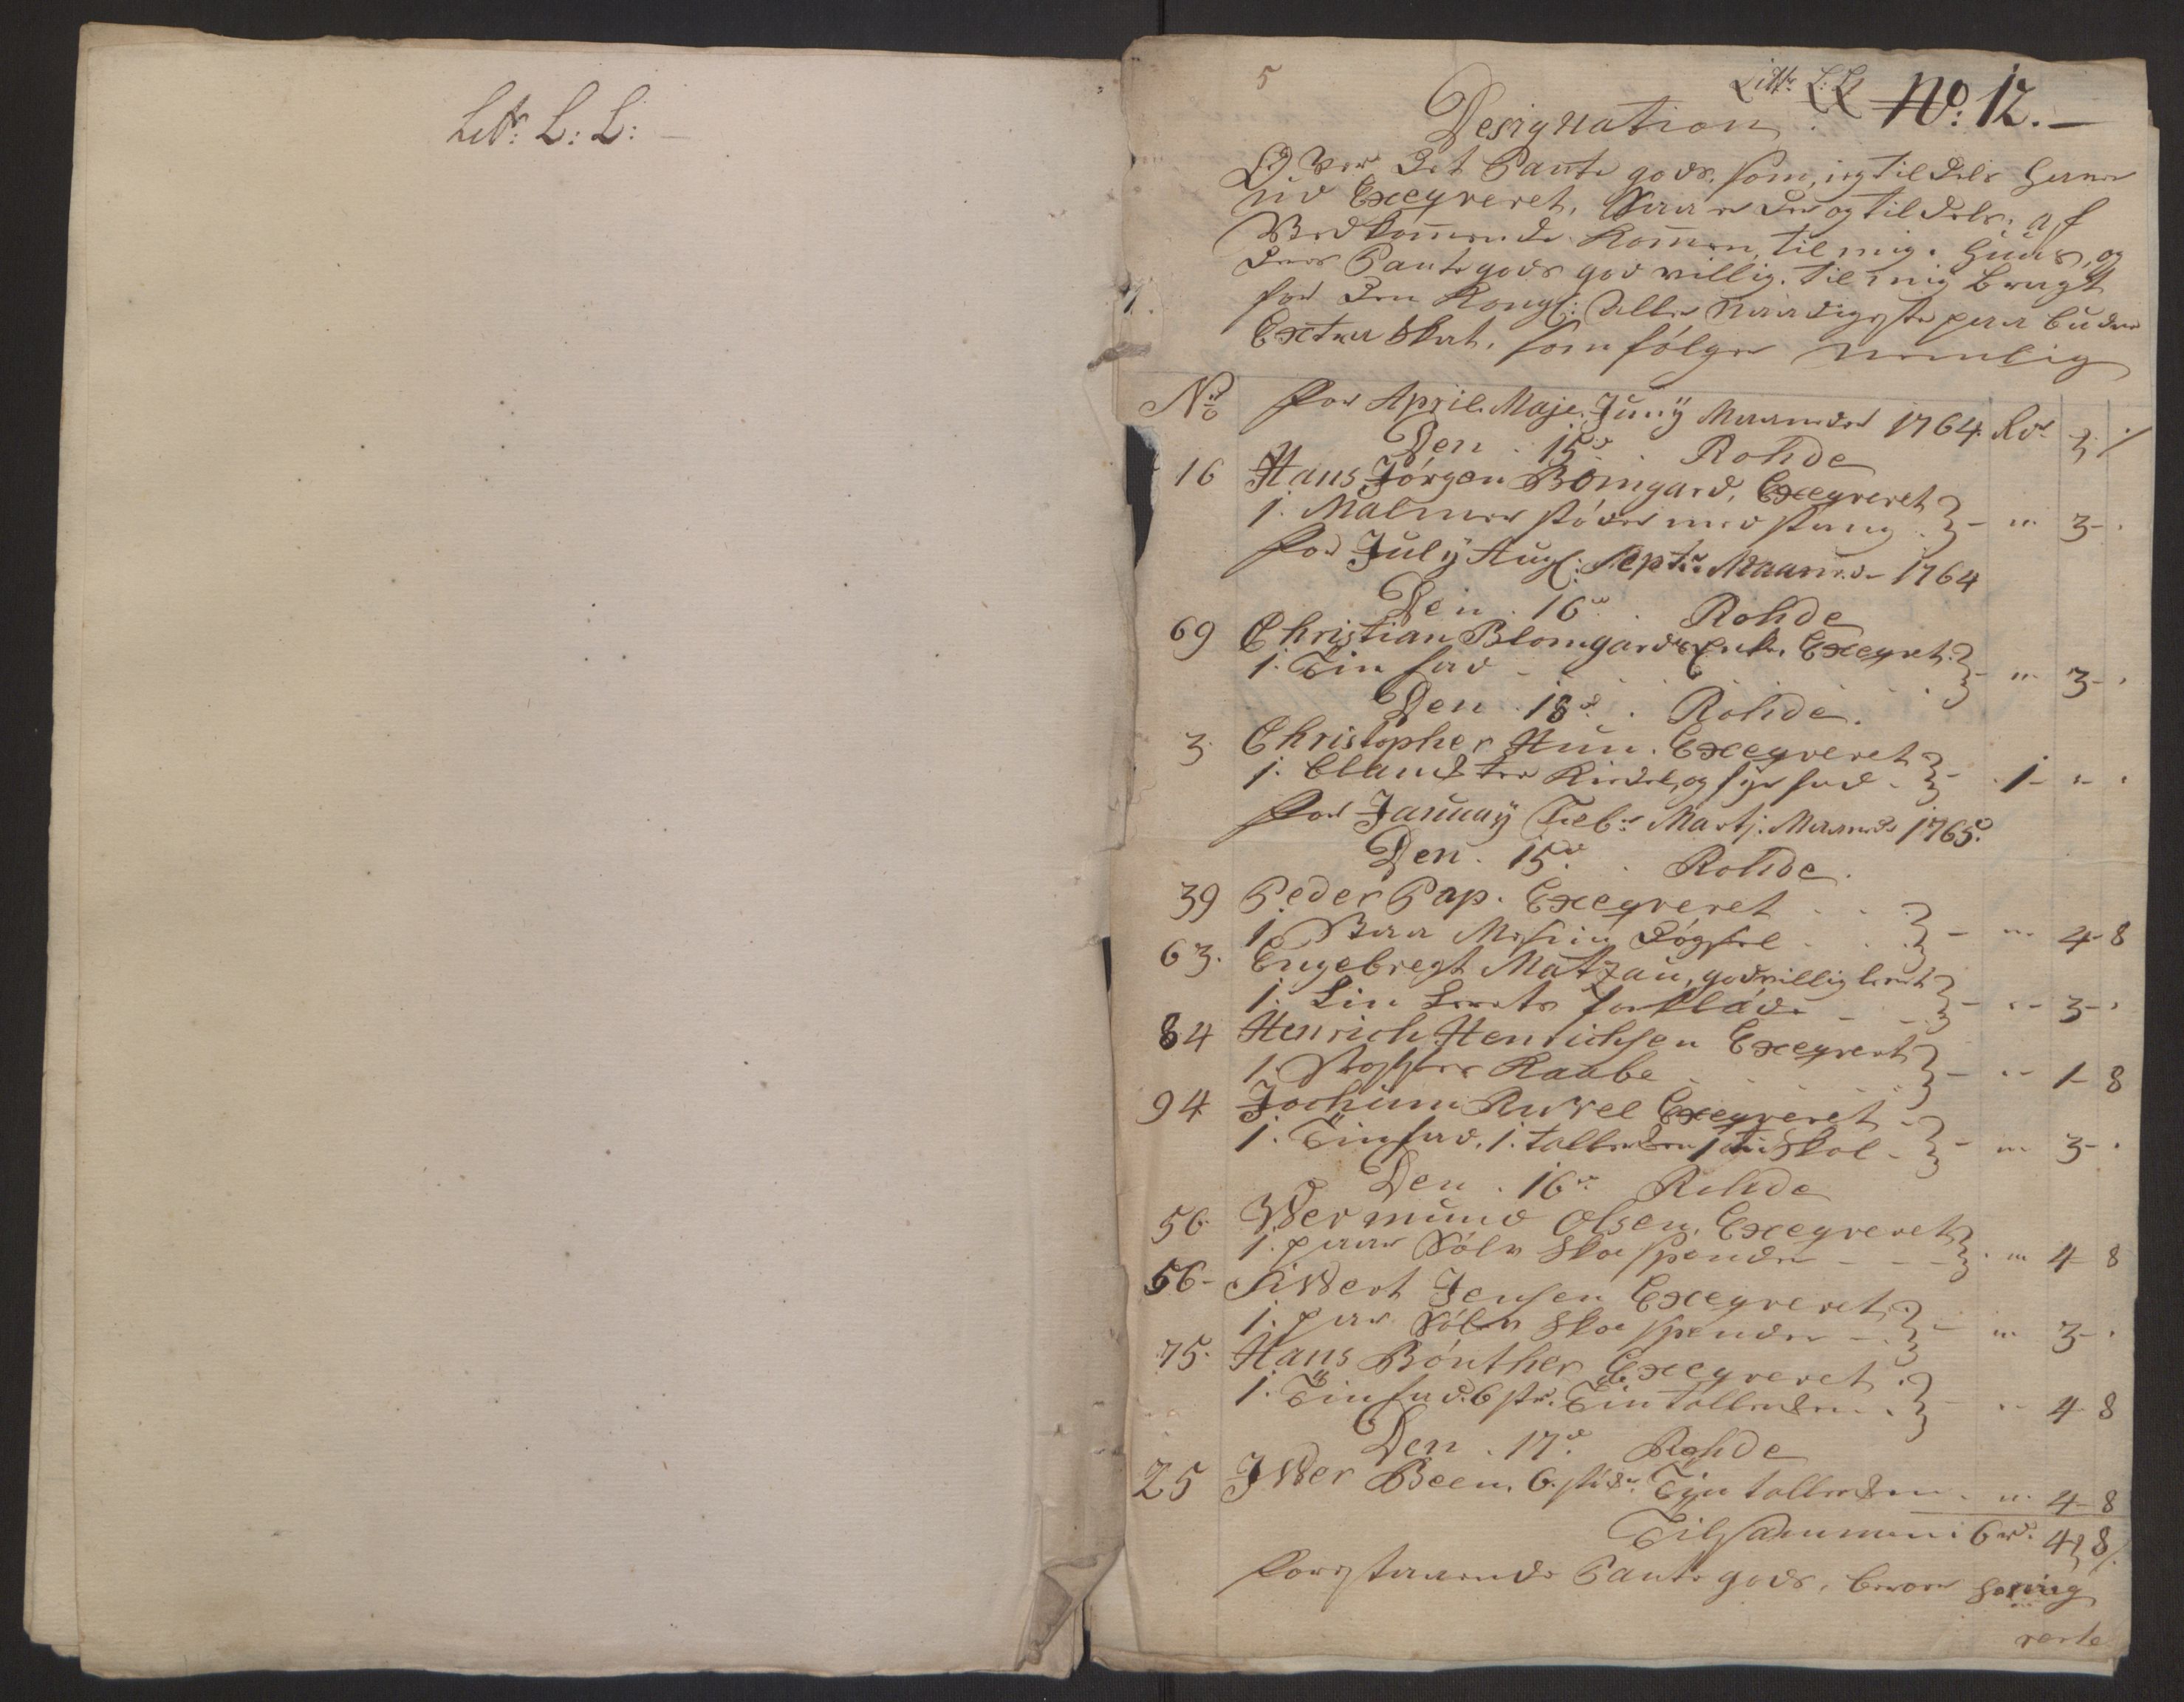 Litr: L: L:
5
Littr L: L No: 12.
Designation
Over Det Pante gods. som, ieg til dels haver
ud Exeqveret, Saa er der og til dels, af
Vedkommende Kommen til mig. Huus, og
deres Pante gods godvillig. til mig bragt
for den Kongl: Aller Naadigste paa budne
Extra Skat, som følger nemlig
No for April. Maje. Junij Maaneder 1764. Rdr
Den . 15de . Rohde
16 Hans Jörgen Bömgard, Exeqveret
1. Malmer støder med stang - " 3 -
for July Aug: Septr Maaned 1764
Den . 16de . Rohde
69 Christian Blomgards Enke. Exeqvret
1. Tin fad - " 3 -
Den . 18de . Rohde.
3 Christopher Hun. Exeqveret
1. blank Kiedel, og fyr fad - 1 - " -
for January Febr Martj. Maaneder 1765.
Den . 15de . Rohde.
39 Peder Pap. Exeqveret
1. Messing - " 4 - 8
63. Engebregt Matzau, godvillig leveret
1. Lin Lerets forklæde - " 3 -
84 Henrich Henrichsen Exeqvert
1. Kaabe - " 1 - 8
94 Jochum Exeqveret
1. Tin fad. 1. tallerken 1 tin Skol - " 3 -
Den . 16de Rohde
56. Wermund Olsen. Exeqveret
1. paar Sölv Skoe spender - " 4 - 8
56 - Siwert Jensen Exeqveret
1. par Sölv Skoe spender - " 3 -
75. Hans Bönther Exeqveret
1. Tin fad. 6 str. Tin tallerken - " 4 - 8
Den . 17de . Rohde
25 Iwer Been. 6. stkr. Tin tallerken - " 4 - 8
Tilsammen: 6 rd. 4 8
forestaaende Pante gods,